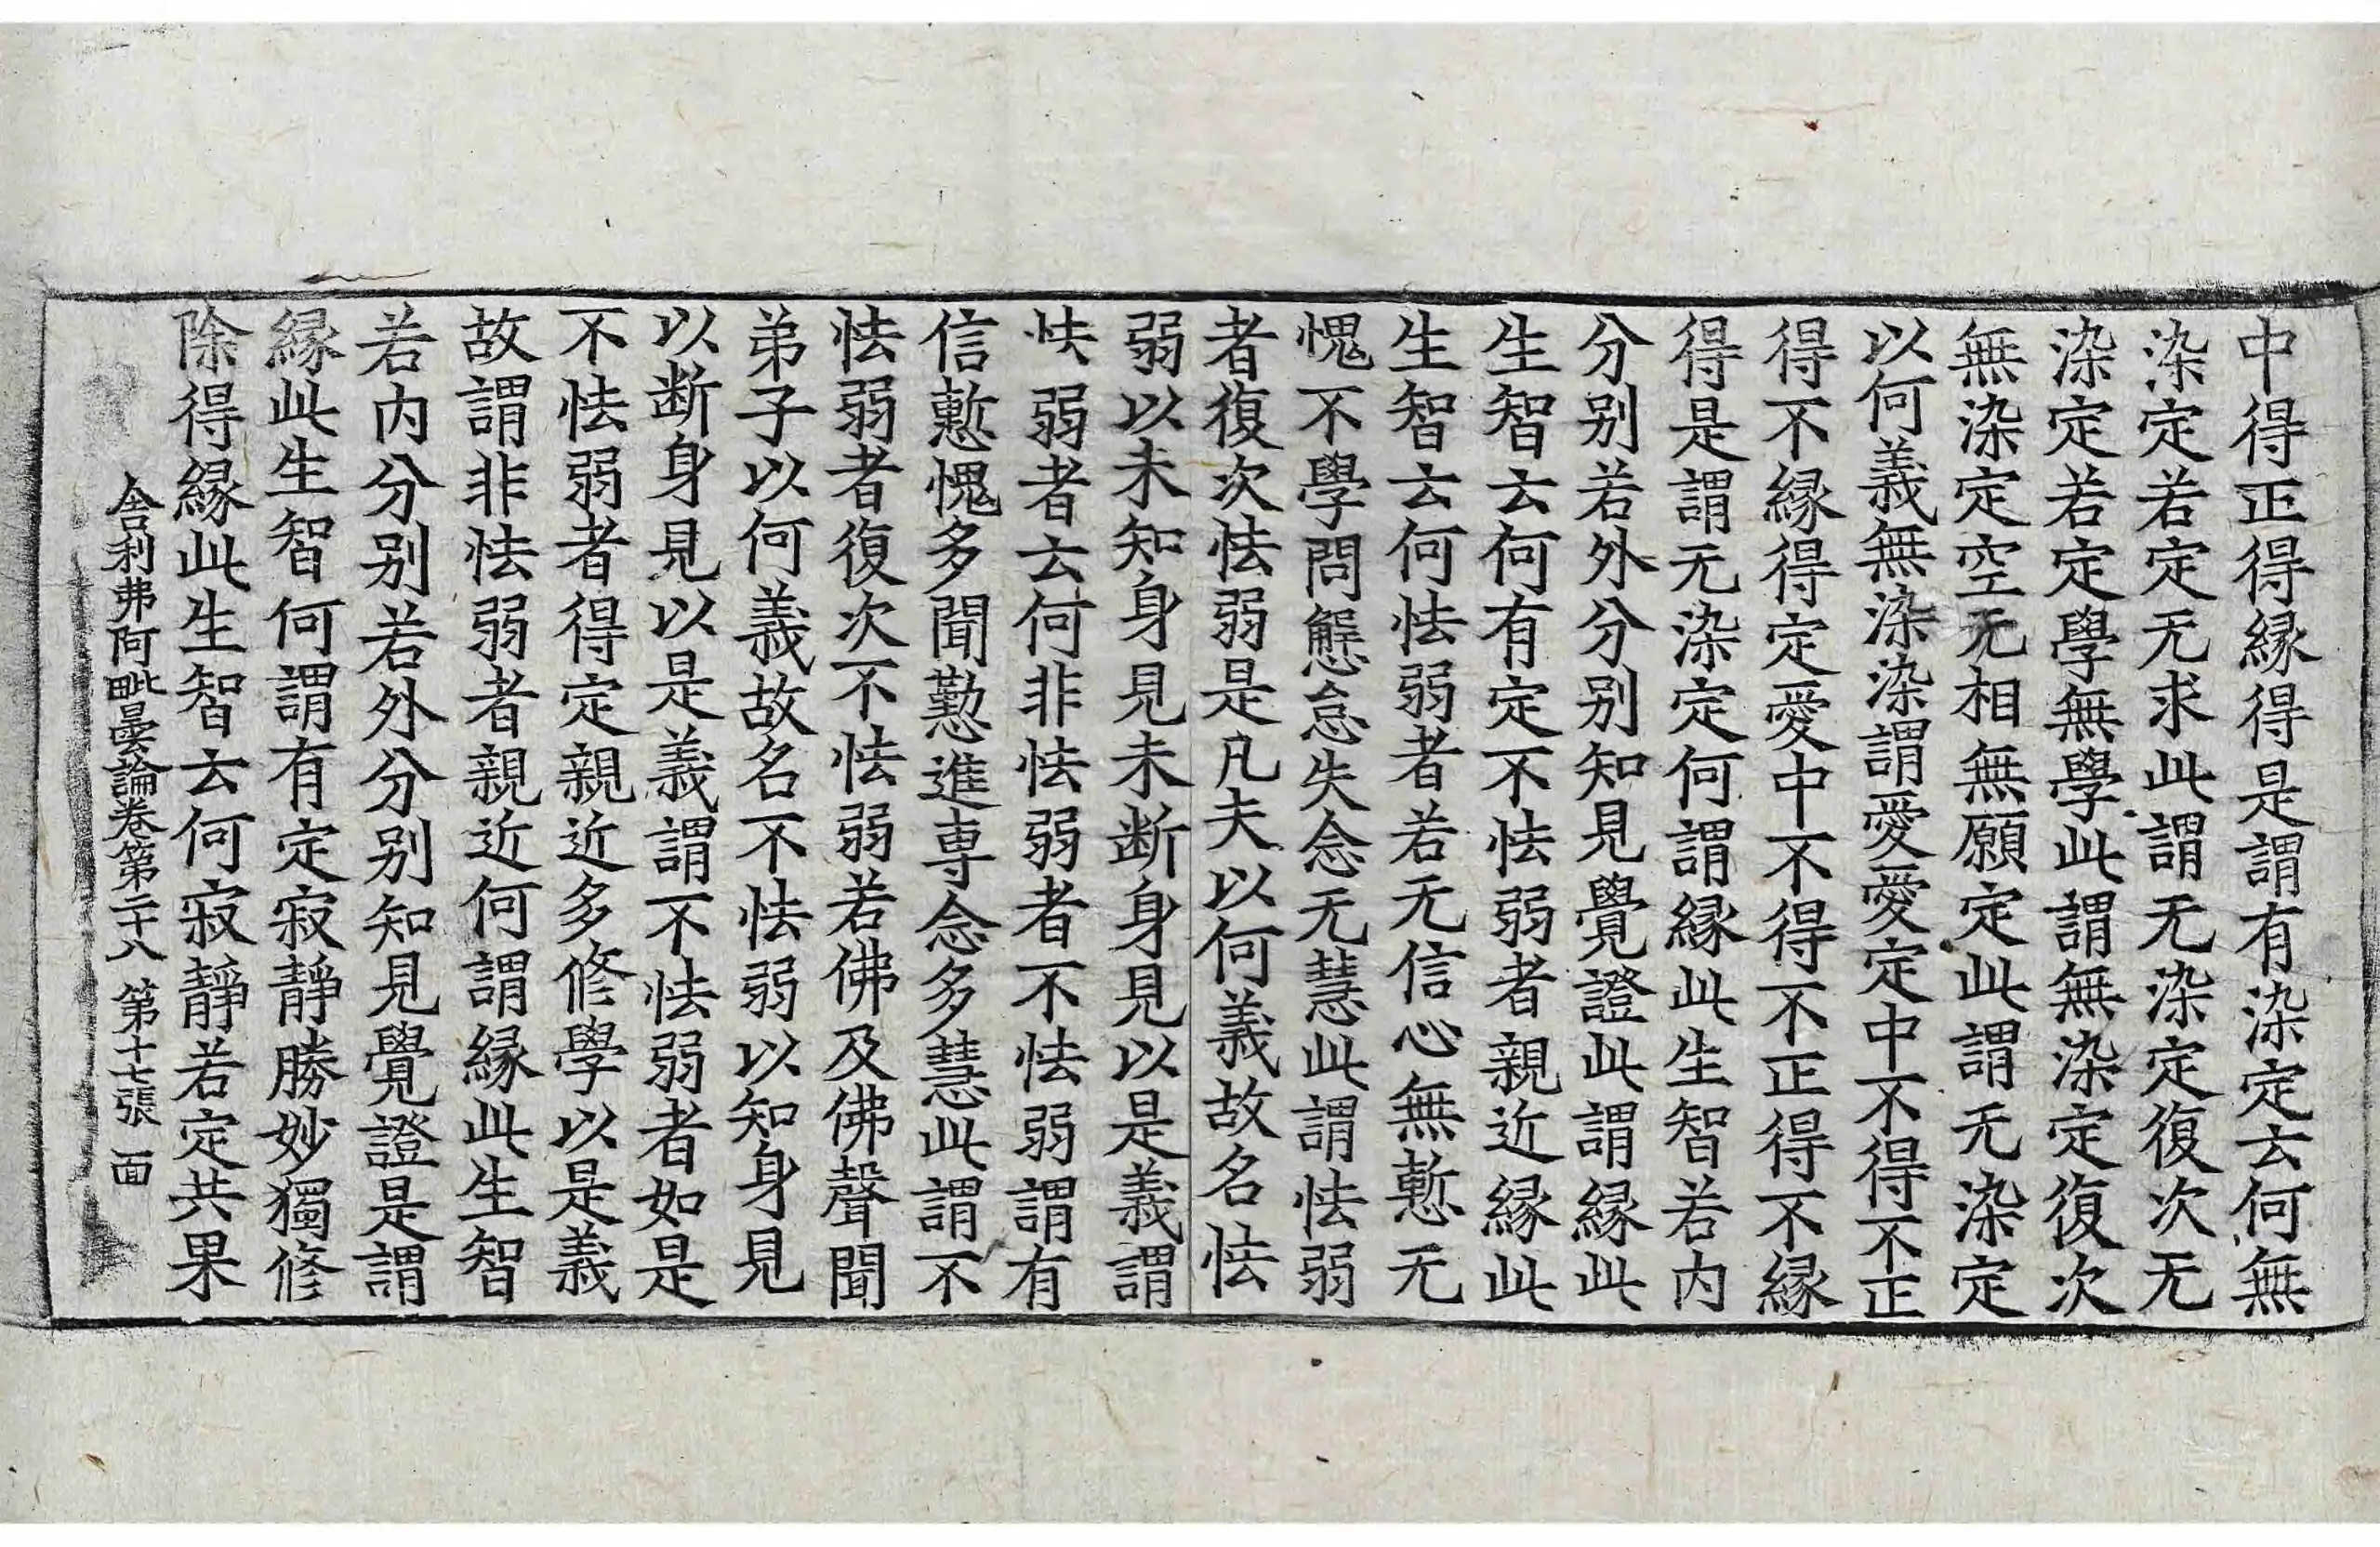 中得正得縁得是謂有染定去何無
染定若定无求此謂无染定復次无
染定若定學無學此謂無染定復次
無染定空无相無願定此謂无染定
以何義無染染謂愛愛定中不得不正
得不縁得定愛中不得不正得不縁
得是謂无染定何謂縁此生智若内
分别若外分别知見覺證此謂縁此
生智去何有定不怯弱者親近縁此
生智去何怯弱者若无信心無慙无
愧不學問懈怠失念无慧此謂怯弱
者復次怯弱是凡夫以何義故名怯
弱以未知身見未断身見以是義謂
怯弱者去何非怯弱者不怯弱謂有
信慙愧多聞勤進専念多慧此謂不
怯弱者復次不怯弱若佛及佛聲聞
弟子以何義故名不怯弱以知身見
以断身見以是義謂不怯弱者如是
不怯弱者得定親近多修學以是義
故謂非怯弱者親近何謂縁此生智
若内分别若外分别知見覺證是謂
縁此生智何謂有定寂靜勝妙獨修
除得縁此生智去何寂靜若定共果
舍利弗阿毗曇論卷第二十八 第十七張 面